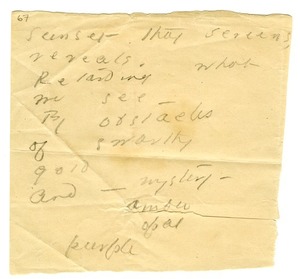 67
Sunset that screens,
reveals.
what
Retarding
we see –
By obstacles
of swarthy
gold
And – mystery –
amber
opal
purple